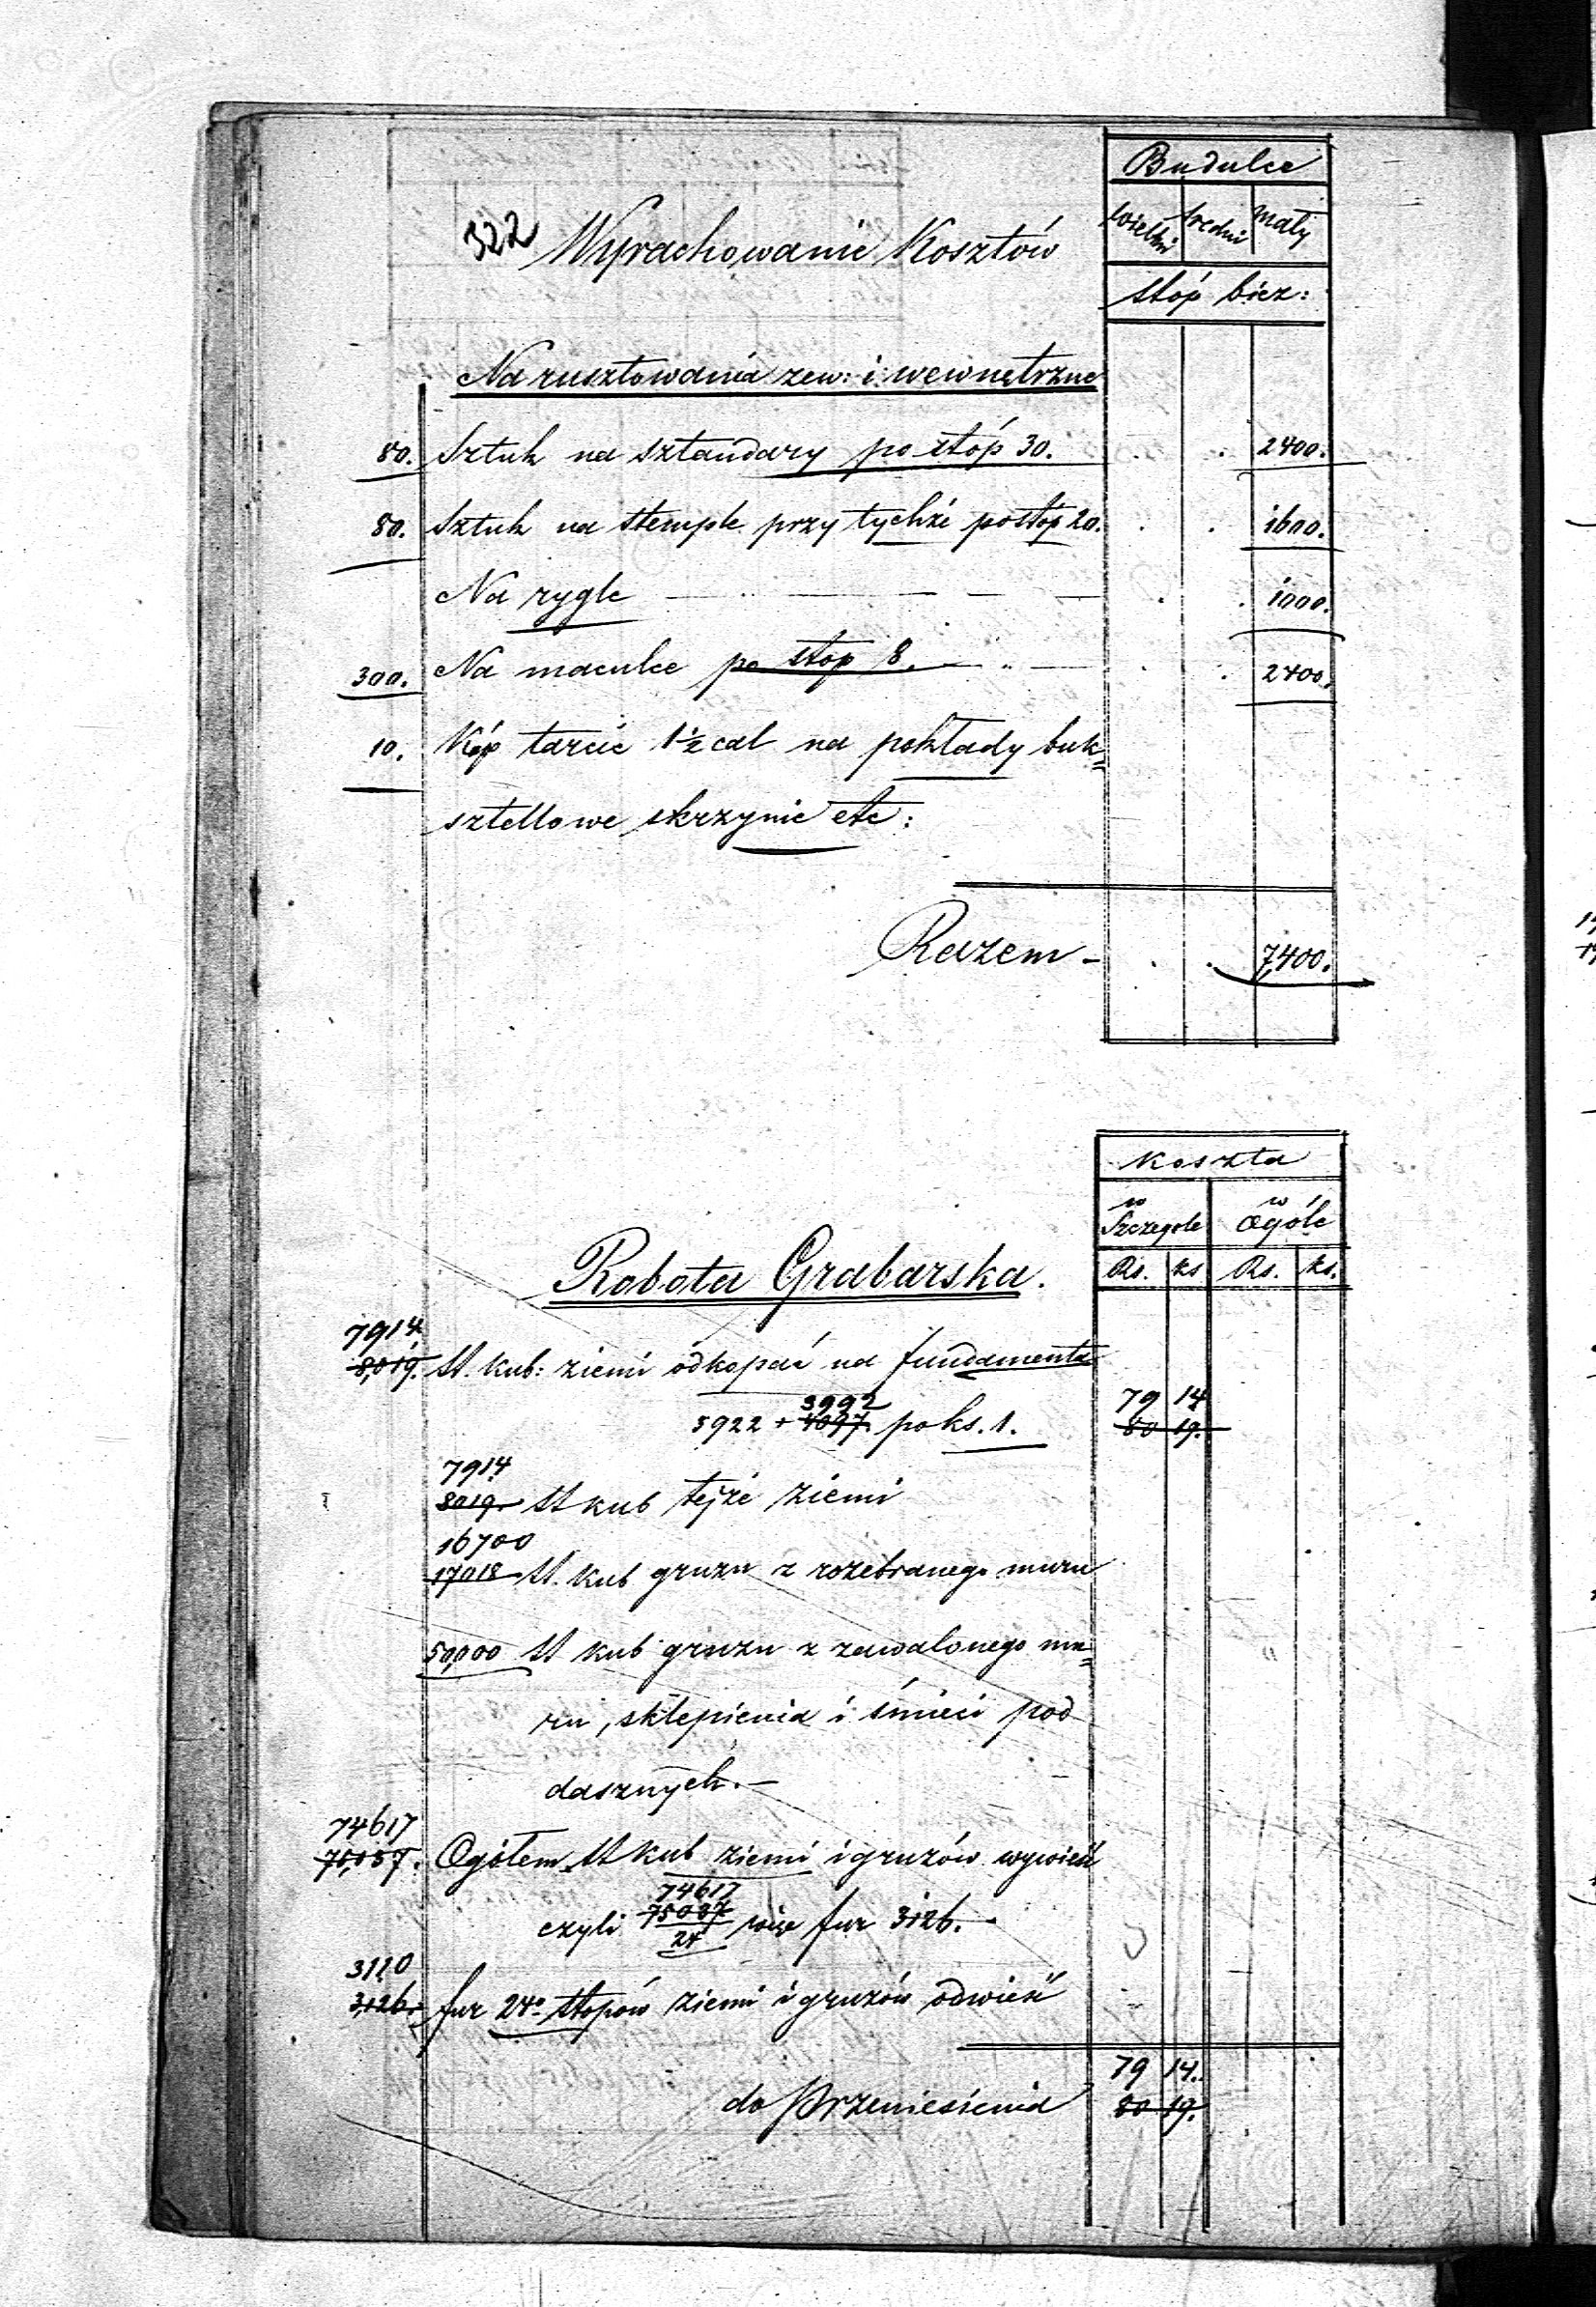 Budulce
322 Wyrachowanie Kosztów
wielki średni mały
stóp bież:
Na rusztowania zew: i wewnętrzne
80. Sztuk na sztandary po stóp 30. . . 2400.
80. Sztuk na stemple przy tychże po stóp 20. . . 1600.
Na rygle . . 1000.
300. Na maculce po stóp 8. . . 2400.
10. Kóp tarcic 1½ cal na pokłady buk=
sztellowe skrzynie etc:
Razem - . . 7,400.
Koszta
w Szczegole w Ogóle
Rs. ks Rs. ks.
Robota Grabarska.
7914
8,019. st. kub: ziemi odkopać na fundamenta
3992 79 14
3922 + 4097 po ks. 1. 80 19.
7914
8019. st kub tejże ziemi
16700
17018 st. kub gruzu z rozebranego muru
50,000 st kub gruzu z zawalonego mu=
ru, sklepienia i śmieci pod
dasznych. —
74617
75,037. Ogółem st kub ziemi i gruzów wywieść
74617
czyli 75037 więc fur 3126.
24
3110
3,126. fur 24o stopów ziemi i gruzów odwieść
79 14.
do Przeniesienia 80 19.